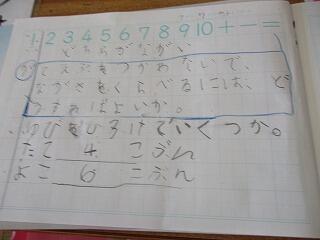 1 2 3 4 5 6 7 8 9 10 + − =
どちらがながい
てえぷをつかわないで、
ながさをくらべるには、ど
うすればよいか。
ゆびをひろげていくつか。
たて 4 こぶん
よこ 6 こぶん